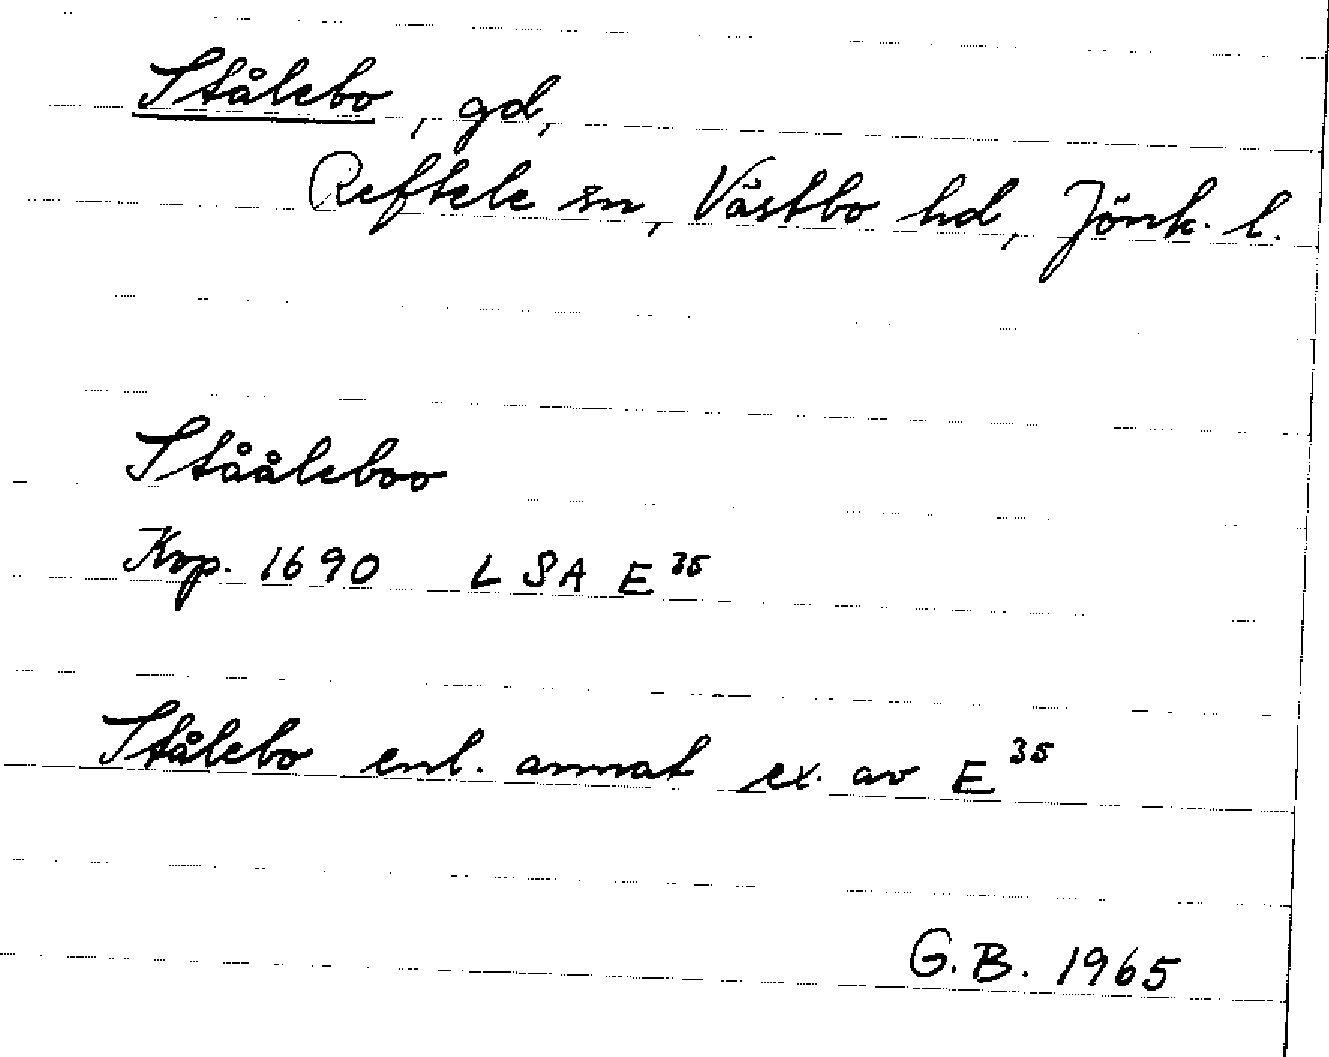 Stålebo, gd,
Reftele sn, Västbo hd, Jönk. l.
Stååleboo
Kop. 1690 LSA E³⁵
Stålebo enl. annat ex. av E³⁵
G.B. 1965